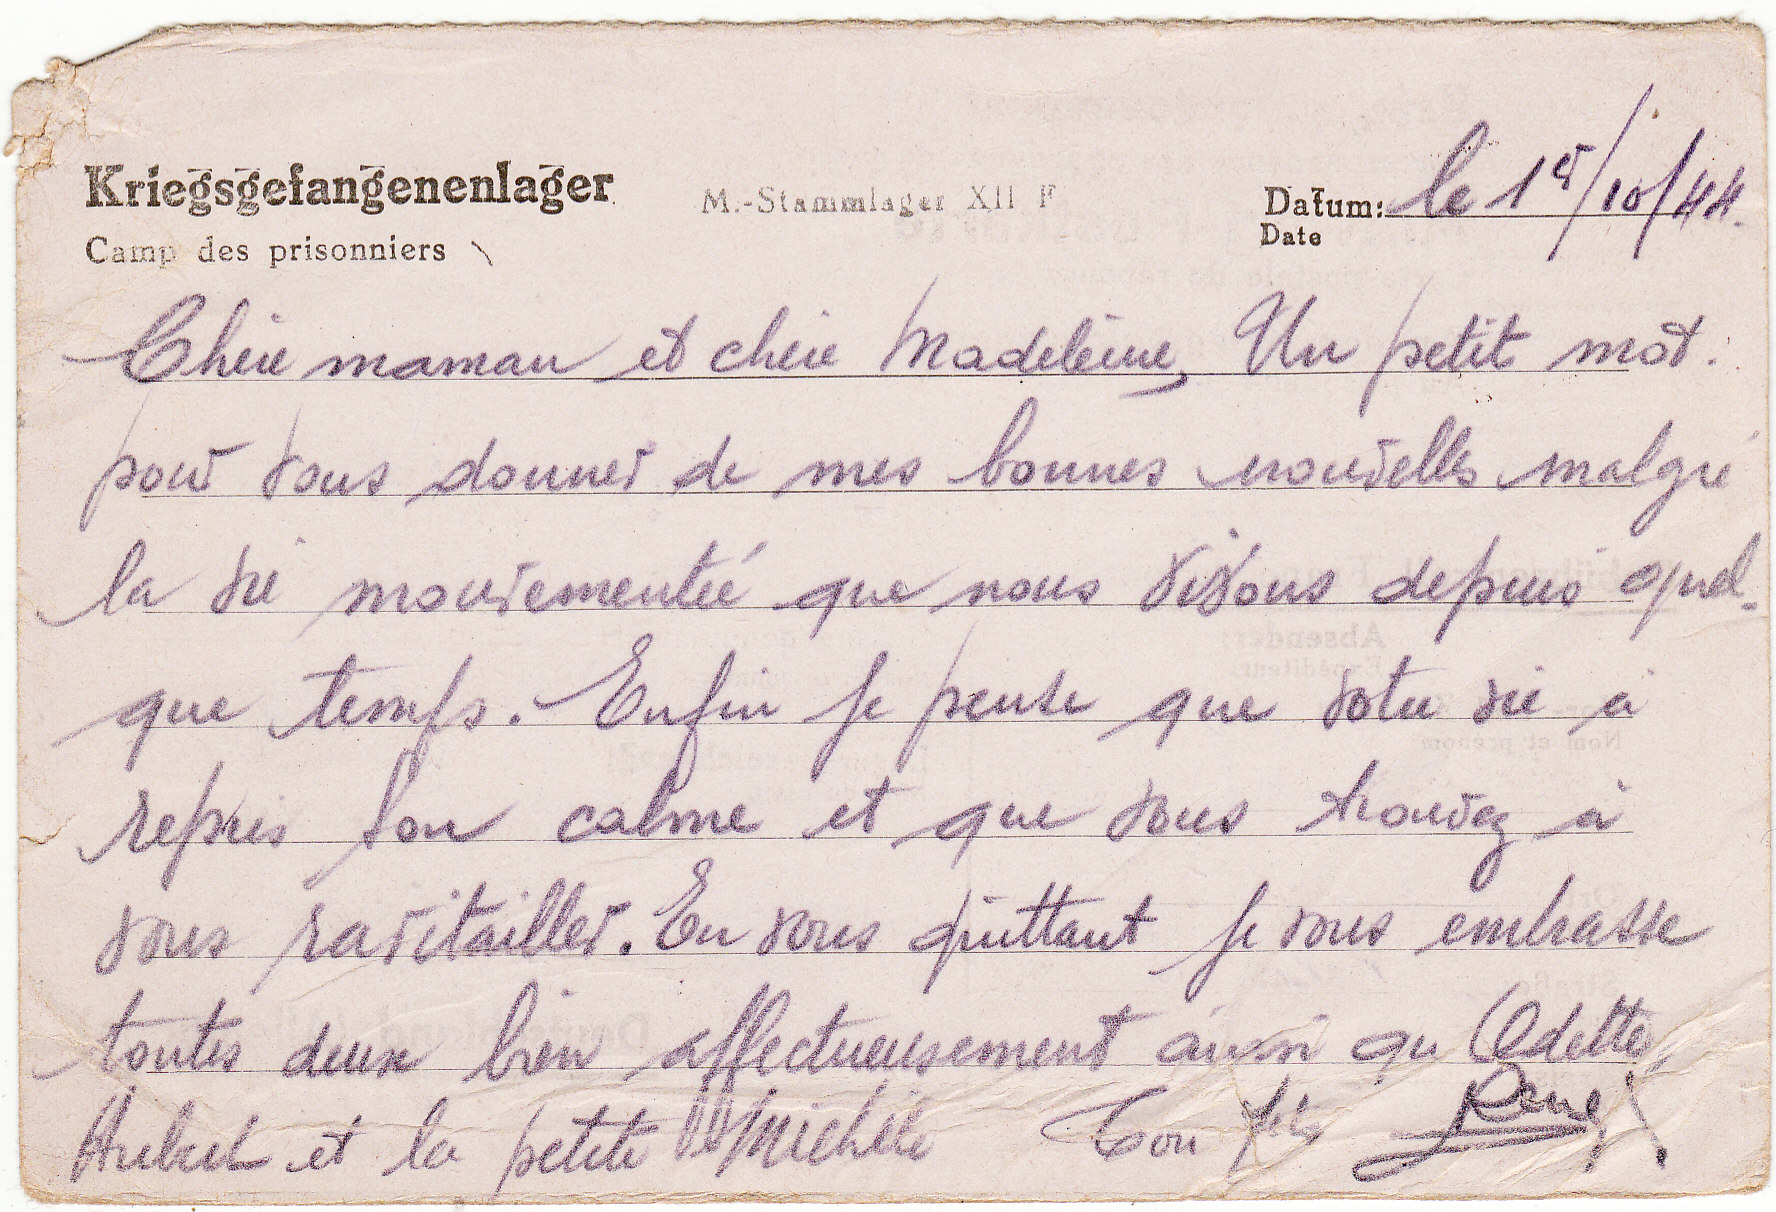 Kriegsgefangenenlager M.-Stammlager XII F Datum: le 1er/10/44.
Camp des prisonniers Date
Chère maman et chère Madeleine, Un petit mot.
pour vous donner de mes bonnes nouvelles malgré
la vie mouvementée que nous vivons depuis quel-
que temps. Enfin je pense que votre vie à
repris son calme et que vous trouvez à
vous ravitailler. En vous quittant je vous embrasse
toutes deux bien affectueusement ainsi qu Odette,
et la petite Michèle Ton fils René